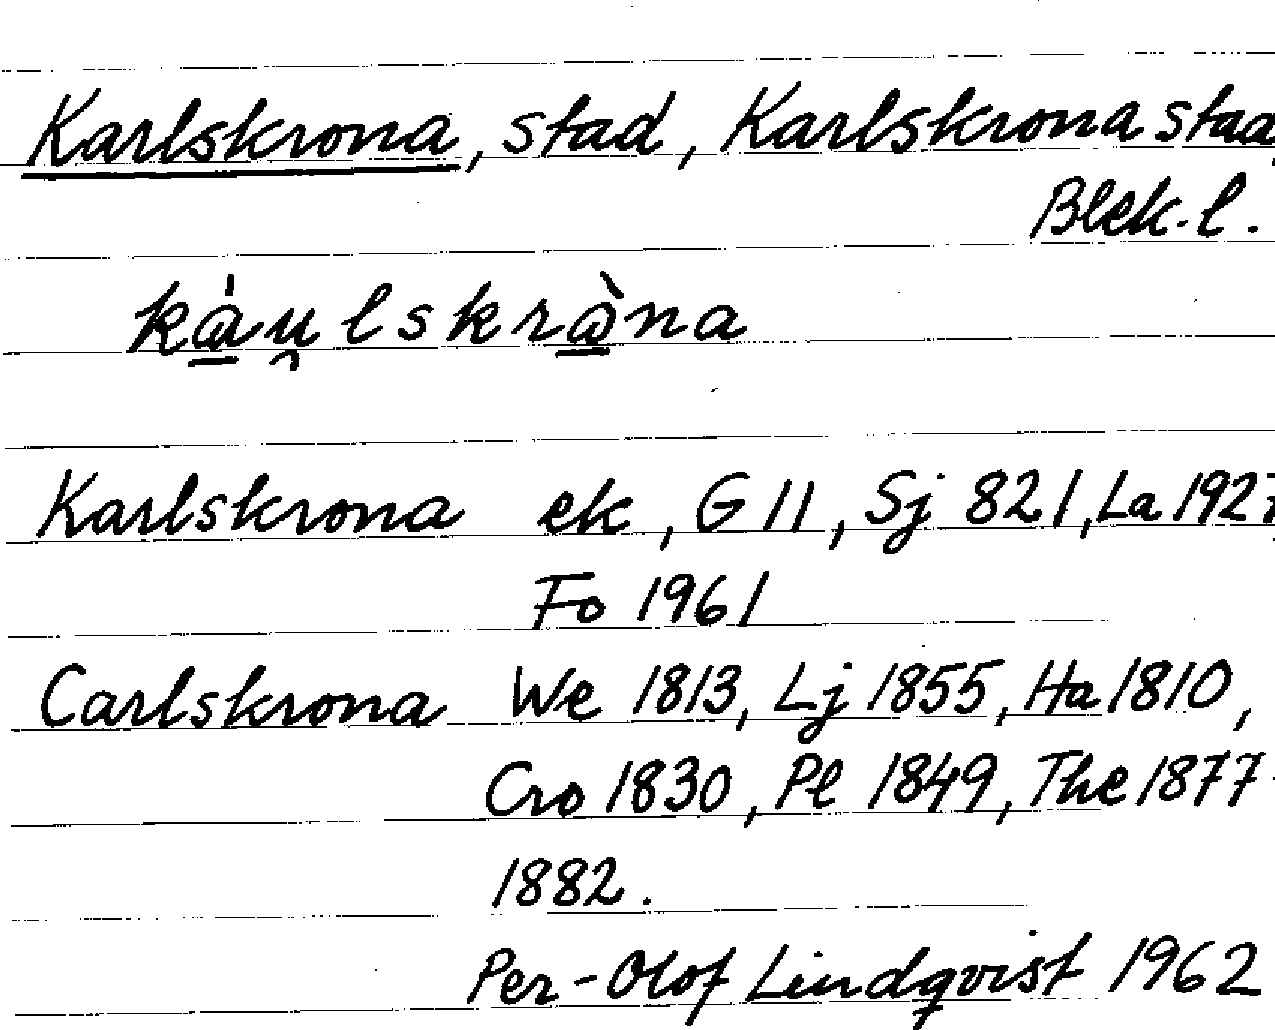 Karlskrona, stad, Karlskrona stad,
Blek. l.
kȧu̯lskràna
Karlskrona ek, G 11, Sj 821, La 1927,
Fo 1961
Carlskrona We 1813, Lj 1855, Ha 1810,
Cro 1830, Pl 1849, The 1877-
1882.
Per-Olof Lindqvist 1962